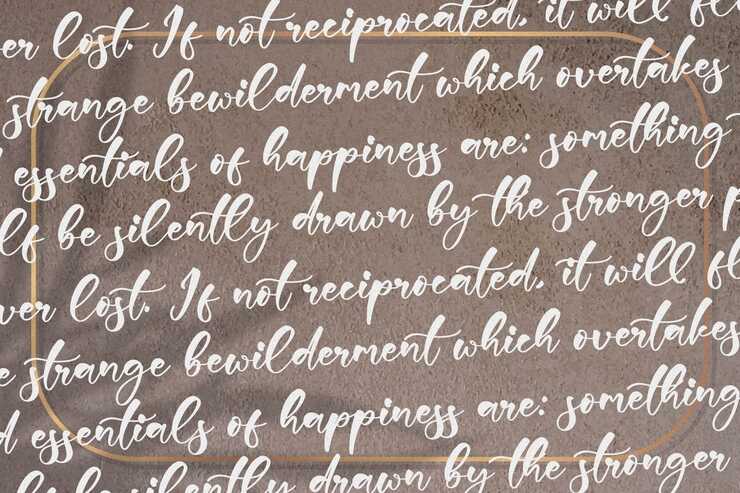 er lost. If not reciprocated, it will fl
strange bewilderment which overtakes
essentials of happiness are: something
lf be silently drawn by the stronger p
ver lost. If not reciprocated, it will fl
e strange bewilderment which overtakes
d essentials of happiness are: something
be silently drawn by the stronger